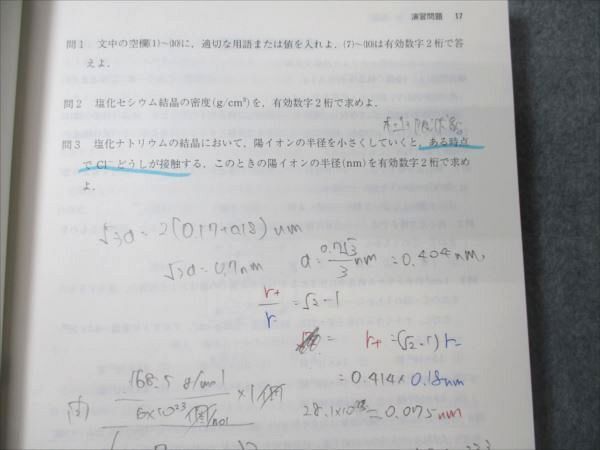 演習問題 17
問1 文中の空欄(1)~(10)に，適切な用語または値を入れよ．(7)~(10)は有効数字2桁で答
えよ．
問2 塩化セシウム結晶の密度(g/cm³)を，有効数字2桁で求めよ．
問3 塩化ナトリウムの結晶において，陽イオンの半径を小さくしていくと，ある時点
で Cl⁻どうしが接触する．このときの陽イオンの半径(nm)を有効数字2桁で求め
よ．
√3a = 2(0.17+0.18) nm
√3a = 0.7nm
a = 0.7√3/3 nm = 0.404 nm,
r+/r- = √2-1
= r+ = (√2-1) r-
= 0.414 × 0.18nm
= 0.075 nm
168.5 g/mol / 6×10²³ 個/mol × 1個
28.1×10